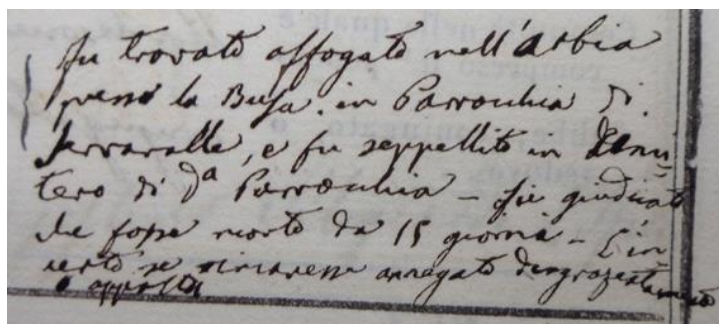 fu trovato affogato nell'Arbia
presso la Busa in Parrocchia di
Serravalle, e fu seppellito in Cimi-
tero di dᵃ Parrocchia – fu giudicato
che fosse morto da 15 giorni – È in-
certo se rimanesse annegato disgraziatamente
o apposta